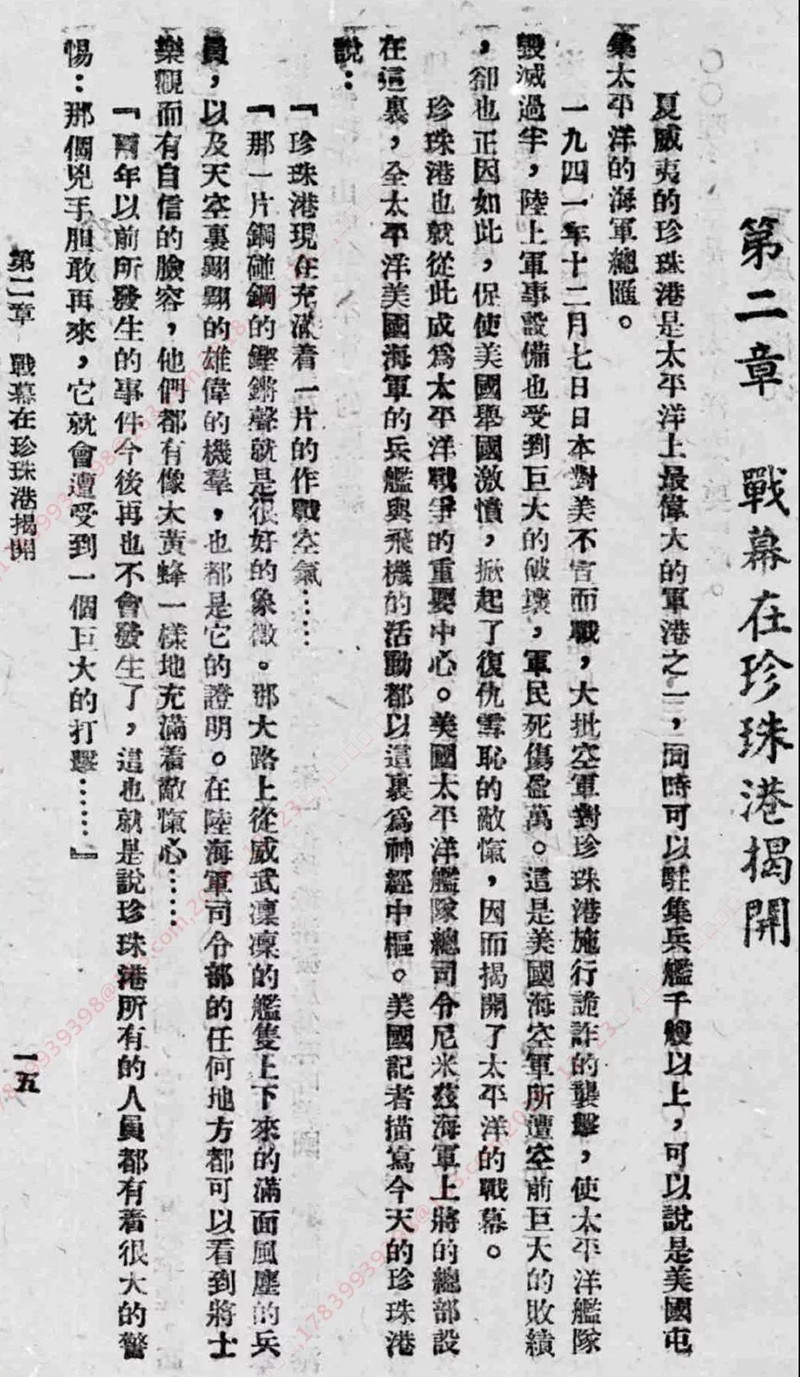 第二章　戰幕在珍珠港揭開
夏威夷的珍珠港是太平洋上最偉大的軍港之一，同時可以駐集兵艦千艘以上，可以說是美國屯
集太平洋的海軍總匯。
一九四一年十二月七日日本對美不宣而戰，大批空軍對珍珠港施行詭詐的襲擊，使太平洋艦隊
毀滅過半，陸上軍事設備也受到巨大的破壞，軍民死傷盈萬。這是美國海空軍所遭空前巨大的敗績
，卻也正因如此，促使美國舉國激憤，掀起了復仇雪恥的敵愾，因而揭開了太平洋的戰幕。
珍珠港也就從此成爲太平洋戰爭的重要中心。美國太平洋艦隊總司令尼米茲海軍上將的總部設
在這裏，全太平洋美國海軍的兵艦與飛機的活動都以這裏爲神經中樞。美國記者描寫今天的珍珠港
說：
『珍珠港現在充滿着一片的作戰空氣……
『那一片鋼碰鋼的鏗鏘聲就是很好的象徵。那大路上從威武凜凜的艦隻上下來的滿面風塵的兵
員，以及天空裏翱翔的雄偉的機羣，也都是它的證明。在陸海軍司令部的任何地方都可以看到將士
樂觀而有自信的臉容，他們都有像大黃蜂一樣地充滿着敵愾心……
『兩年以前所發生的事件今後再也不會發生了，這也就是說珍珠港所有的人員都有着很大的警
惕：那個兇手胆敢再來，它就會遭受到一個巨大的打擊……』
第二章　戰幕在珍珠港揭開
一五